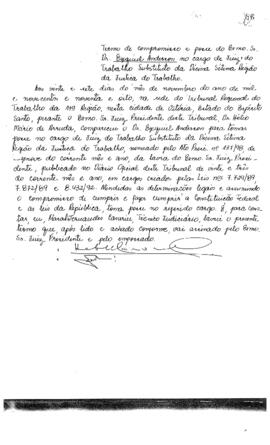 Termo de compromisso e posse do Exmo. Sr.
Dr. Ezequiel Anderson no cargo de Juiz do
Trabalho Substituto da Décima Sétima Região
da Justiça do Trabalho.
Aos vinte e sete dias do mês de novembro do ano de mil
e novecentos e noventa e oito, na sede do Tribunal Regional do
Trabalho da 17ª Região, nesta cidade de Vitória, Estado do Espírito
Santo, perante o Exmo. Sr. Juiz Presidente deste Tribunal, Dr. Hélio
Mário de Arruda, compareceu o Dr. Ezequiel Anderson para tomar
posse no cargo de Juiz do Trabalho Substituto da Décima Sétima
Região da Justiça do Trabalho, nomeado pelo Ato Presi. nº de
do corrente mês e ano, da lavra do Exmo. Sr. Juiz Presi-
dente, publicado no Diário Oficial deste Tribunal de vinte e três
do corrente mês e ano, em cargos criados pelas Leis nºs 7.729/89,
7.872/89 e 8.432/92. Atendidas as determinações legais e assumindo
o compromisso de cumprir e fazer cumprir a Constituição Federal
e as leis da República, toma posse no referido cargo. E, para cons-
tar, eu, Técnico Judiciário, lavrei o presente
termo que, após lido e achado conforme, vai assinado pelo Exmo.
Sr. Juiz Presidente e pelo empossado.